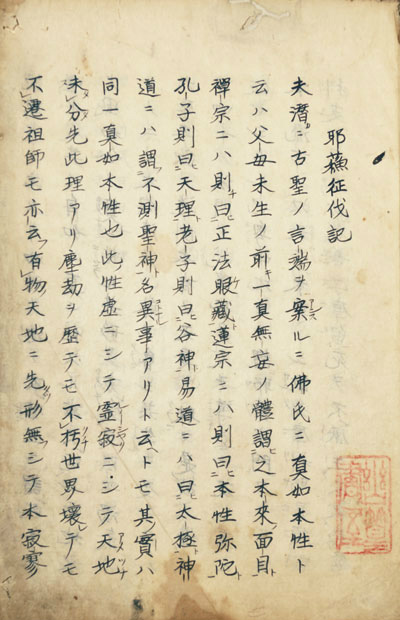 耶蘓征伐記
夫濳ニ古聖ノ言端ヲ案ルニ佛氏ニ真如本性ト
云ハ父母未生ノ前キ一真無妄ノ體謂之本來ノ面目ト
禅宗ニハ則曰正法眼藏蓮宗ニハ則曰本性弥陀
孔子則曰天理老子則曰谷神易道ニハ曰太極神
道ニハ謂不測聖神名異事アリト云トモ其實ハ
同一真如本性也此性虚ニシテ霊寂ニシテ天地
未分先此理アリ塵劫ヲ歴テモ不朽世界壊テモ
不遷祖師モ亦云有物天地ニ先形無シテ本寂寥